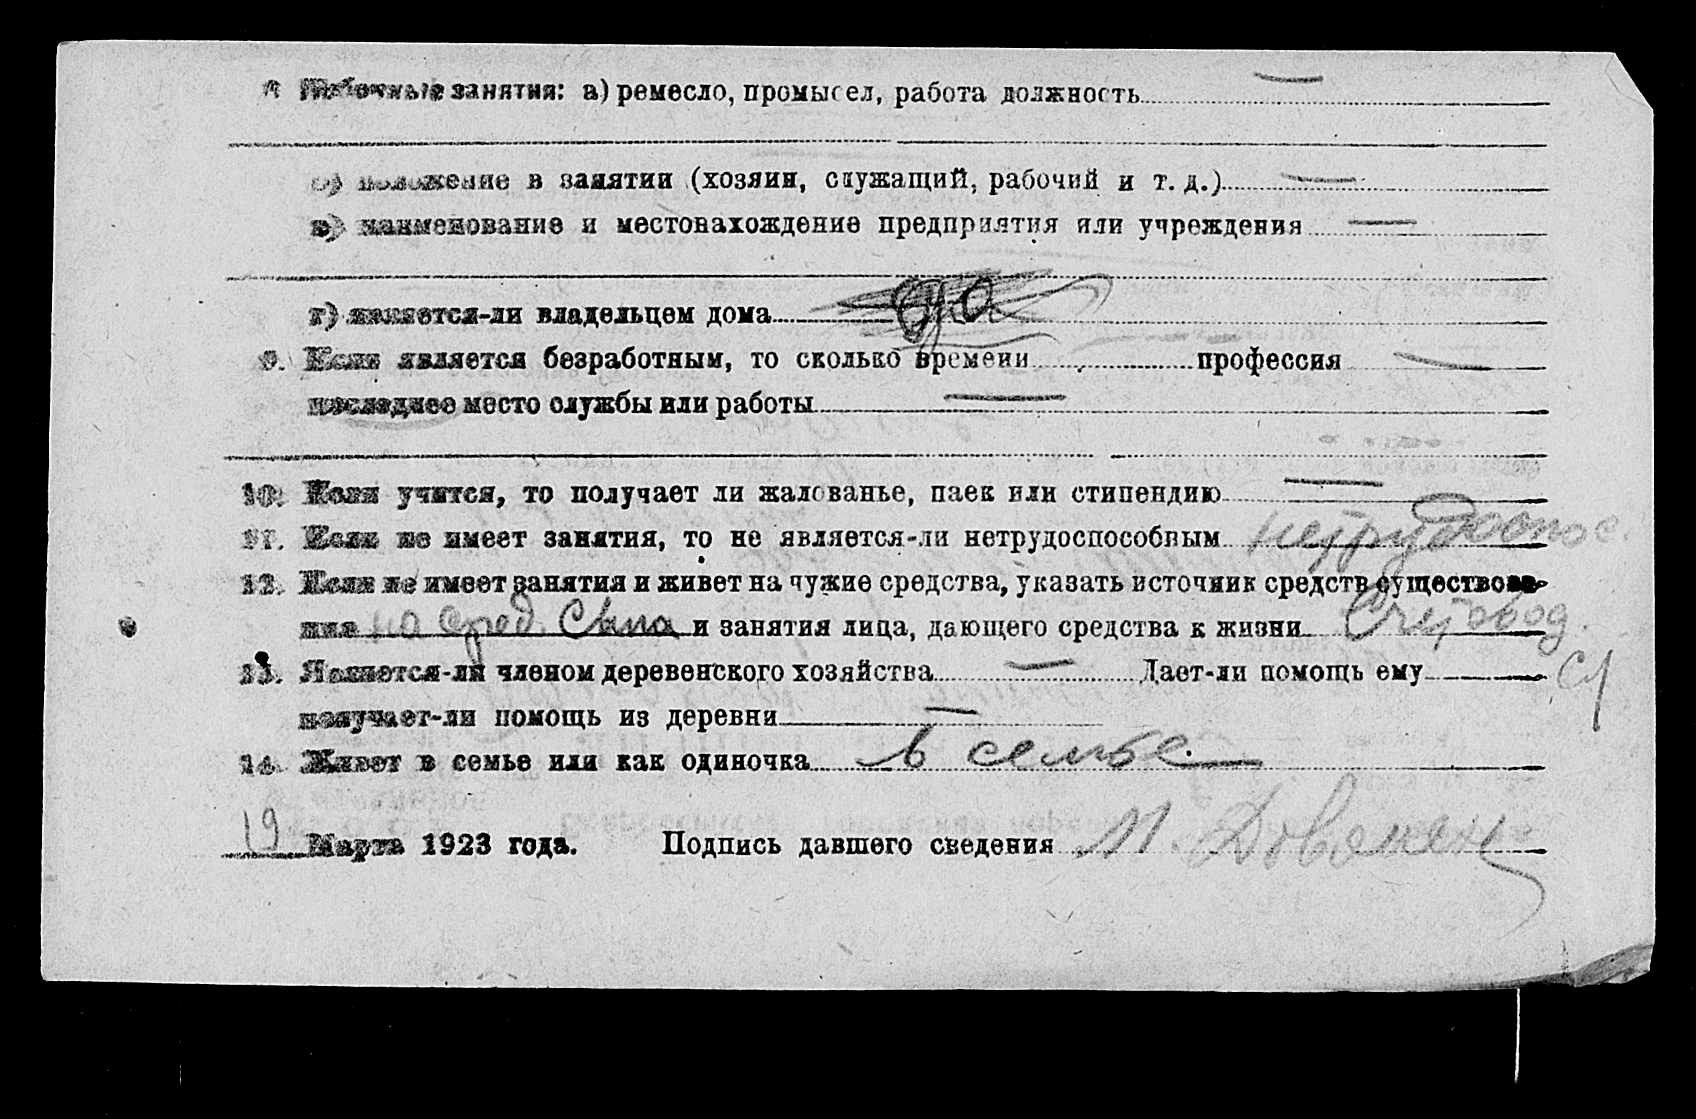 8. Побочные занятия: а) ремесло, промысел, работа должность —
б) положение в занятии (хозяин, служащий, рабочий и т. д.) —
в) наименование и местонахождение предприятия или учреждения —
г) является-ли владельцем дома
9. Если является безработным, то сколько времени профессия —
последнее место службы или работы —
10. Если учится, то получает ли жалованье, паек или стипендию —
11. Если не имеет занятия, то не является-ли нетрудоспособным нетрудоспос.
12. Если не имеет занятия и живет на чужие средства, указать источник средств существова-
ния на сред. Сына и занятия лица, дающего средства к жизни Счетовод.
13. Является-ли членом деревенского хозяйства — Дает-ли помощь ему
получает-ли помощь из деревни —
14. Живет в семье или как одиночка в семье.
19 Марта 1923 года. Подпись давшего сведения